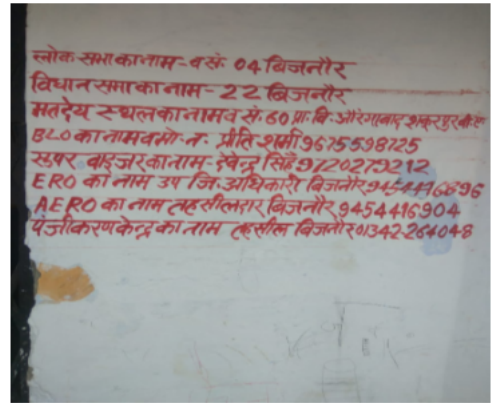 लोक सभा का नाम - व सं 04 बिजनौर
विधान सभा का नाम - 22 बिजनौर
मतदेय स्थल का नाम व सं. 60 प्रा. वि. औरंगाबाद शकूरपुर
BLO का नाम व मो. न. प्रीति शर्मा 9675598725
सुपर वाइजर का नाम - देवेन्द्र सिंह 9720279212
ERO का नाम उप जि. अधिकारी बिजनौर 9454416896
AERO का नाम तहसीलदार बिजनौर 9454416904
पंजीकरण केन्द्र का नाम तहसील बिजनौर 01342-264048